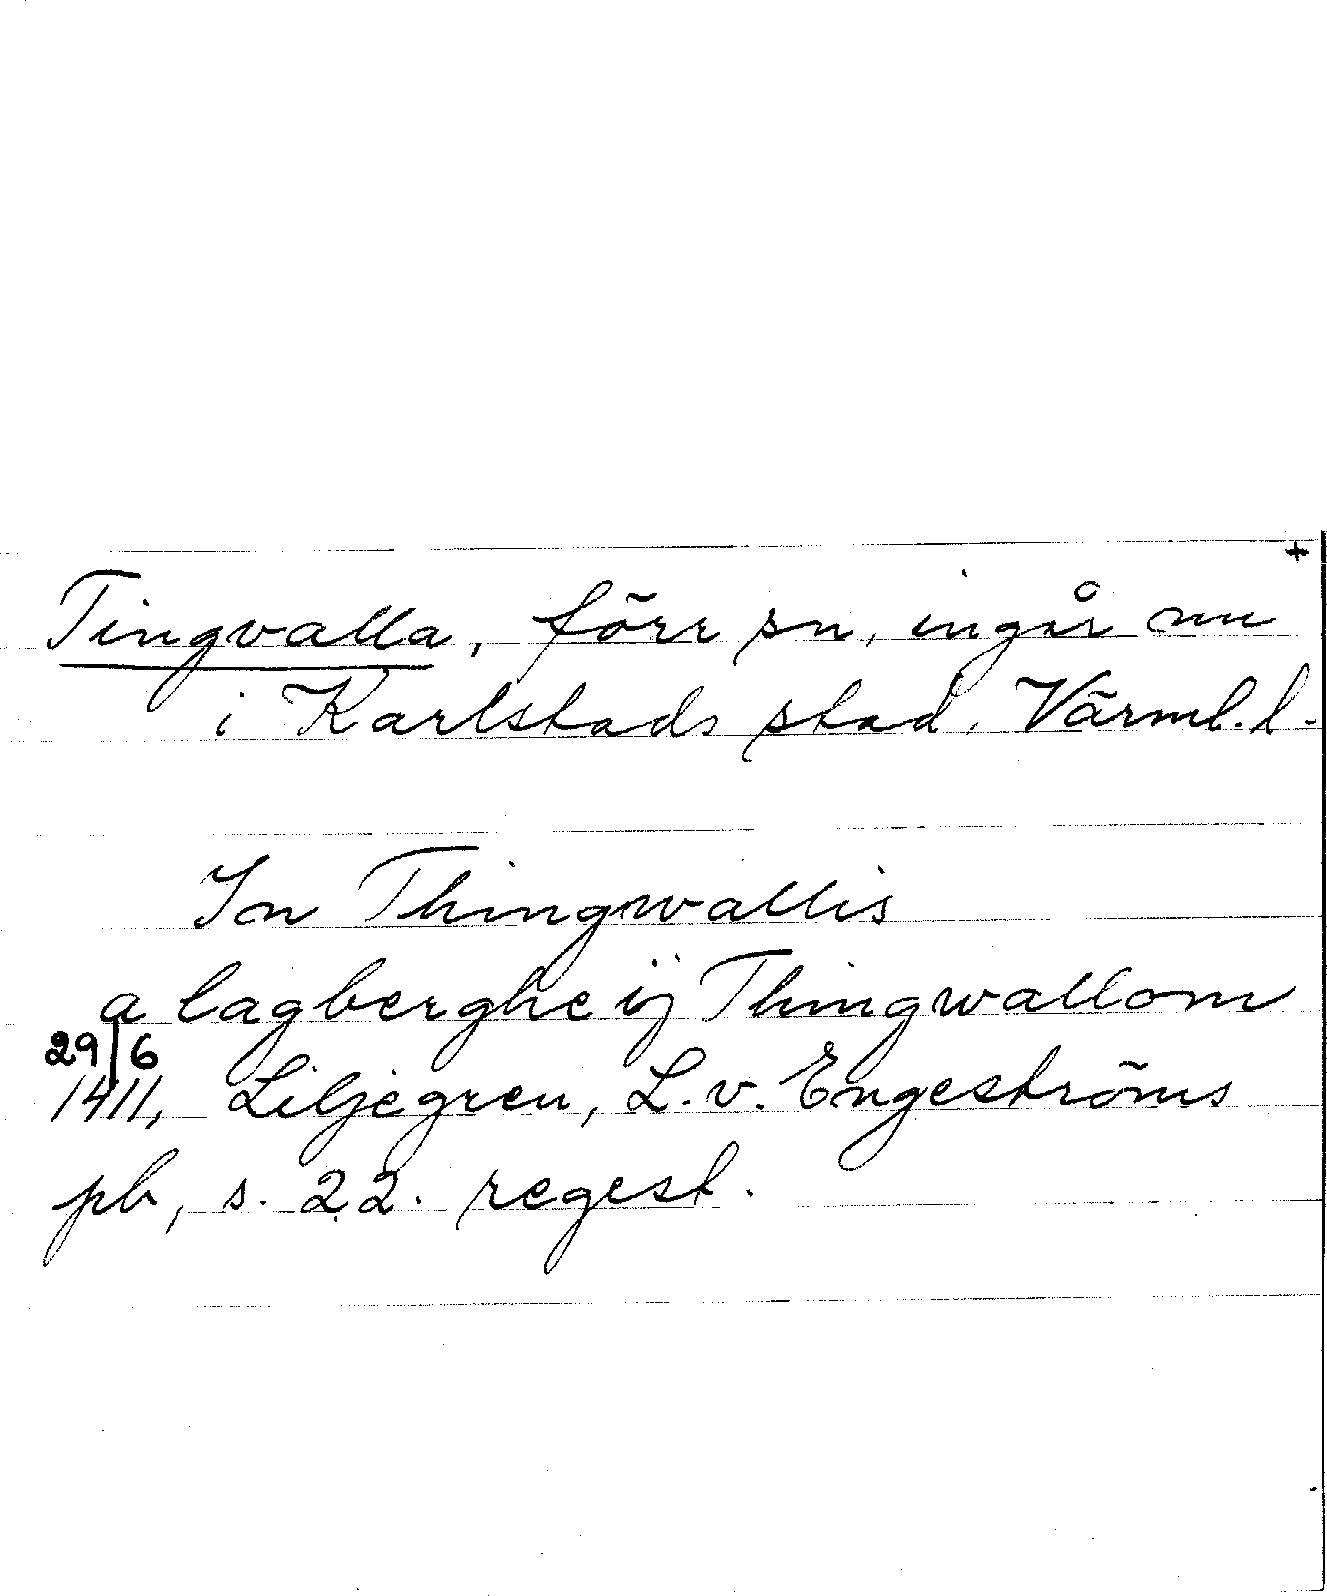 +
Tingvalla, förr sn, ingår nu
i Karlstads stad, Värml. l.
In Thingwallis
a lagberghe ij Thingwallom
29/6
1411, Liljegren, L. v. Engeströms
pb, s. 22. regest.